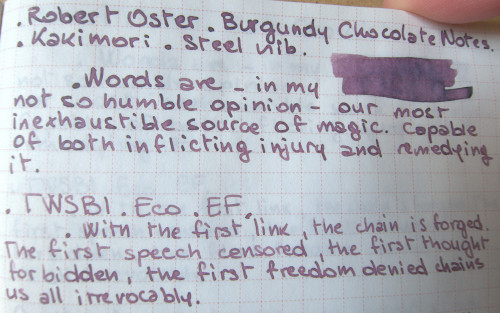 . Robert Oster . Burgundy Chocolate Notes.
. Kakimori . Steel nib.
. Words are - in my
not so humble opinion - our most
inexhaustible source of magic. Capable
of both inflicting injury and remedying
it.
. TWSBI . Eco . EF .
. With the first link, the chain is forged.
The first speech censored, the first thought
forbidden, the first freedom denied chains
us all irrevocably.